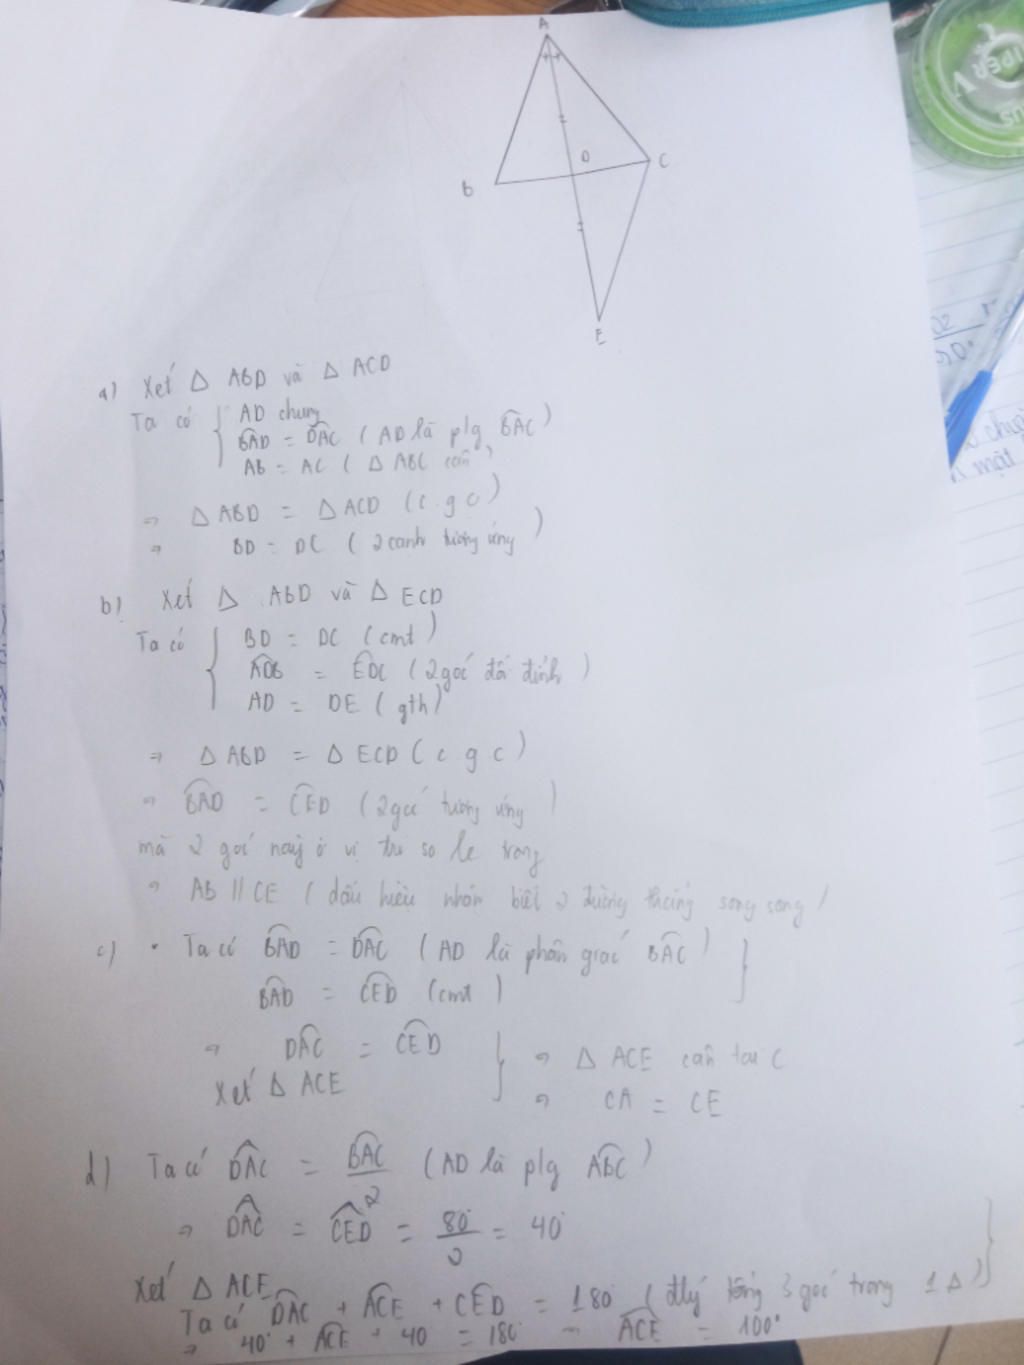 A
D
C
B
E
a) Xét Δ ABD và Δ ACD
Ta có { AD chung
BAD = DAC ( AD là p/g BAC )
AB = AC ( Δ ABC cân )
⇒ Δ ABD = Δ ACD (c.g.c)
⇒ BD = DC ( 2 cạnh tương ứng )
b) Xét Δ ABD và Δ ECD
Ta có { BD = DC (cmt)
ADB = EDC ( 2 góc đối đỉnh )
AD = DE ( gth )
⇒ Δ ABD = Δ ECD ( c g c )
⇒ BAD = CED ( 2 góc tương ứng )
mà 2 góc này ở vị trí so le trong
⇒ AB // CE ( dấu hiệu nhận biết 2 đường thẳng song song )
c) • Ta có BAD = DAC ( AD là phân giác BAC ) }
BAD = CED (cmt)
⇒ DAC = CED } ⇒ Δ ACE cân tại C
Xét Δ ACE ⇒ CA = CE
d) Ta có DAC = BAC / 2 ( AD là p/g ABC )
⇒ DAC = CED = 80° / 2 = 40°
Xét Δ ACE
Ta có DAC + ACE + CED = 180° ( đlý tổng 3 góc trong 1 Δ ) }
⇒ 40° + ACE + 40 = 180° ⇒ ACE = 100°